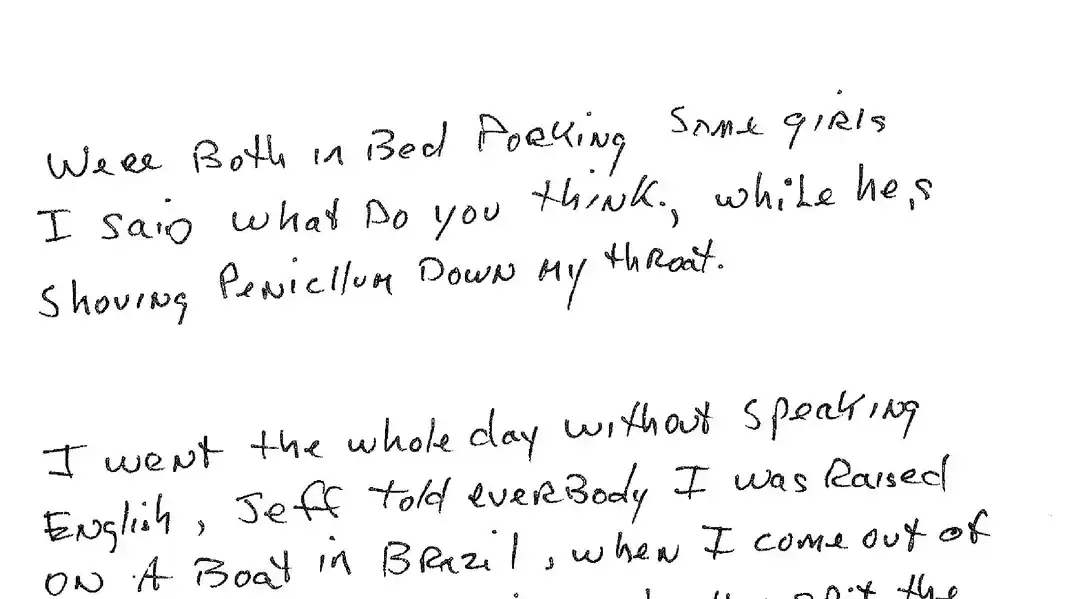 Were Both in Bed Porking some girls
I said what Do you think., while he,s
shoving Penicllum Down my throat.
I went the whole day without speaking
English, Jeff told everBody I was Raised
ON A Boat in Brazil, when I come out of
the